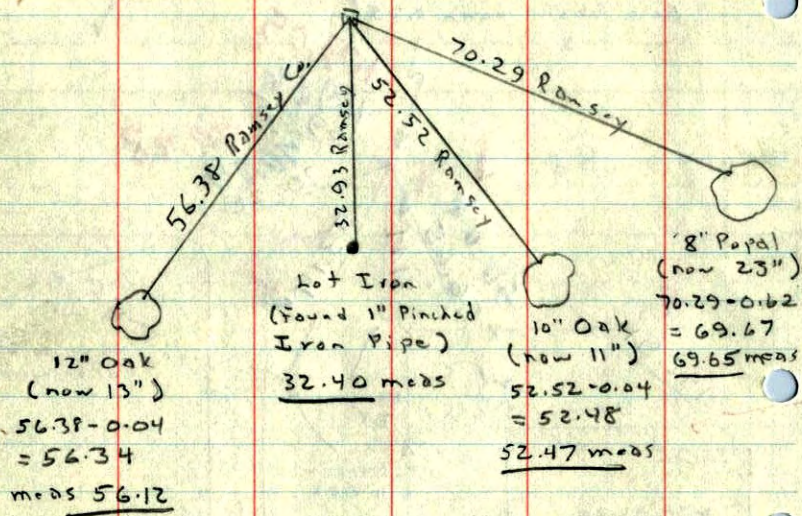 56.38 Ramsey Co.
32.93 Ramsey
52.52 Ramsey
70.29 Ramsey
12" Oak
(now 13")
56.38-0.04
= 56.34
meas 56.12
Lot Iron
(Found 1" Pinched
Iron Pipe)
32.40 meas
10" Oak
(now 11")
52.52-0.04
= 52.48
52.47 meas
8" Popal
(now 23")
70.29-0.62
= 69.67
69.65 meas